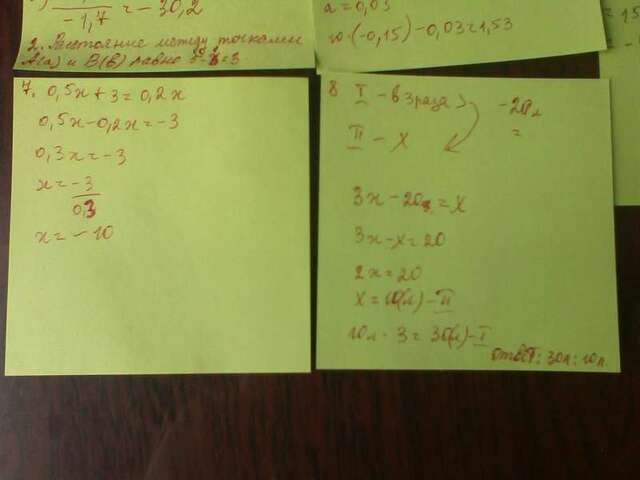 -1,7 = -30,2
2. Расстояние между точками
A(a) и B(b) равно
a = 0,03
(-0,15) - 0,03 = 1,53
15
7. 0,5x + 3 = 0,2x
0,5x - 0,2x = -3
0,3x = -3
x = -3
0,3
x = -10
8 I - в 3 раза >
-20л
=
II - x
3x - 20 = x
3x - x = 20
2x = 20
x = 10(л) - II
10л · 3 = 30(л) - I
ответ: 30л; 10л.